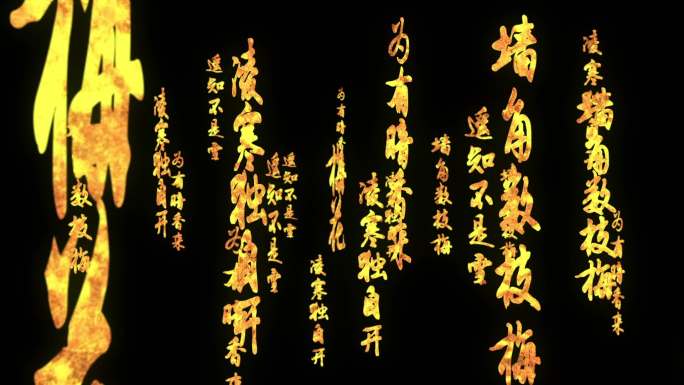 梅花
数枝梅
凌寒独自开
为有暗香来
遥知不是雪
凌寒独自开
遥知不是雪
遥知不是雪
凌寒独自开
为有暗
梅花
凌寒独自开
为有暗香来
墙角数枝梅
遥知不是雪
墙角数枝梅
凌寒
墙角数枝梅
为有暗香来